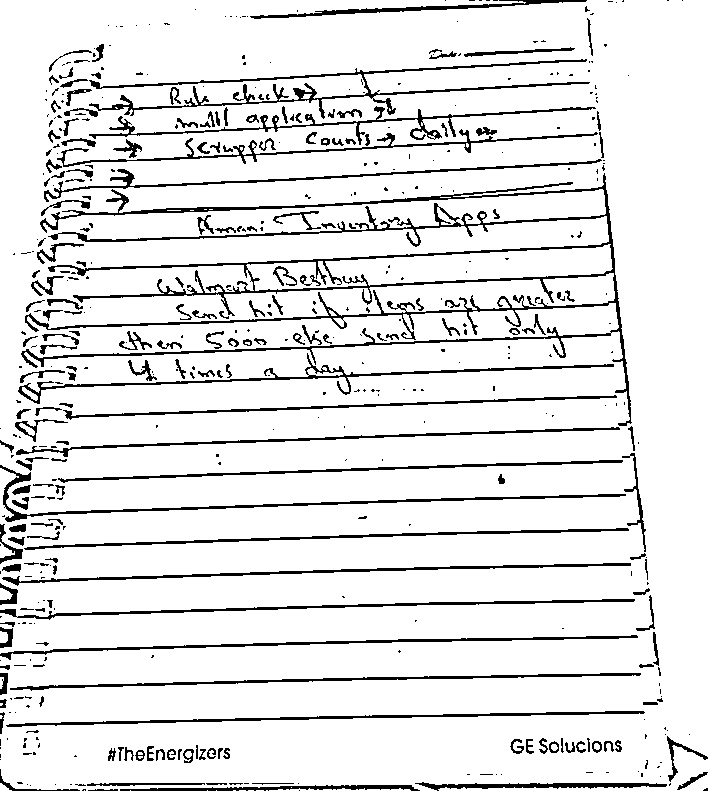 Date:
Rule check →
multi application →
Scrapper Counts → daily
Amani Inventory Apps
Walmart Bestbuy
Send hit if items are greater
then 5000 else send hit only
4 times a day.
#TheEnergizers
GE Solucions